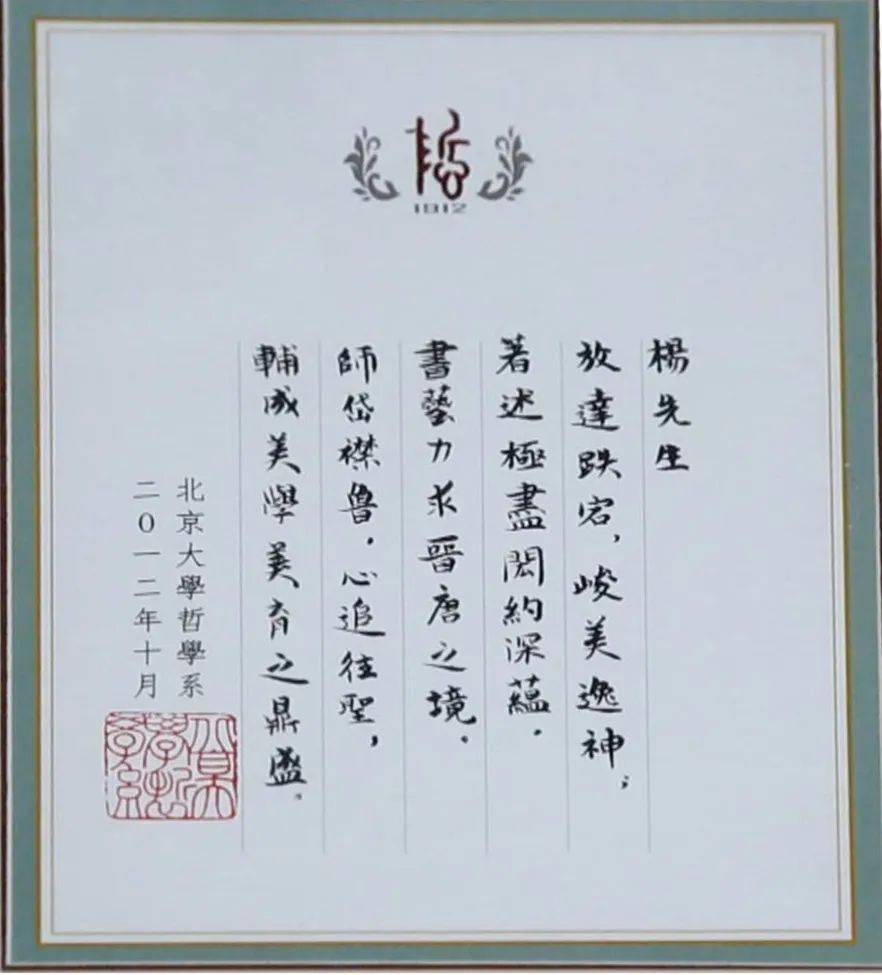 哲
1912
楊先生
放達跌宕，峻美逸神，
著述極盡閎約深蘊．
書藝力求晉唐之境。
師岱襟魯，心追往聖，
輔成美學美育之鼎盛。
北京大學哲學系
二〇一二年十月
北京大學哲學系